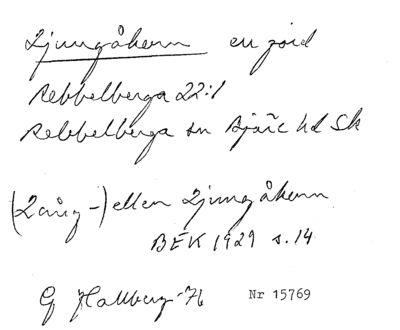 Ljungåkern en jord
Rebbelberga 22:1
Rebbelberga sn Bjäre hd Sk
(Lång-) eller Ljungåkern
BEK 1929 s. 14
G Hallberg -76 Nr 15769